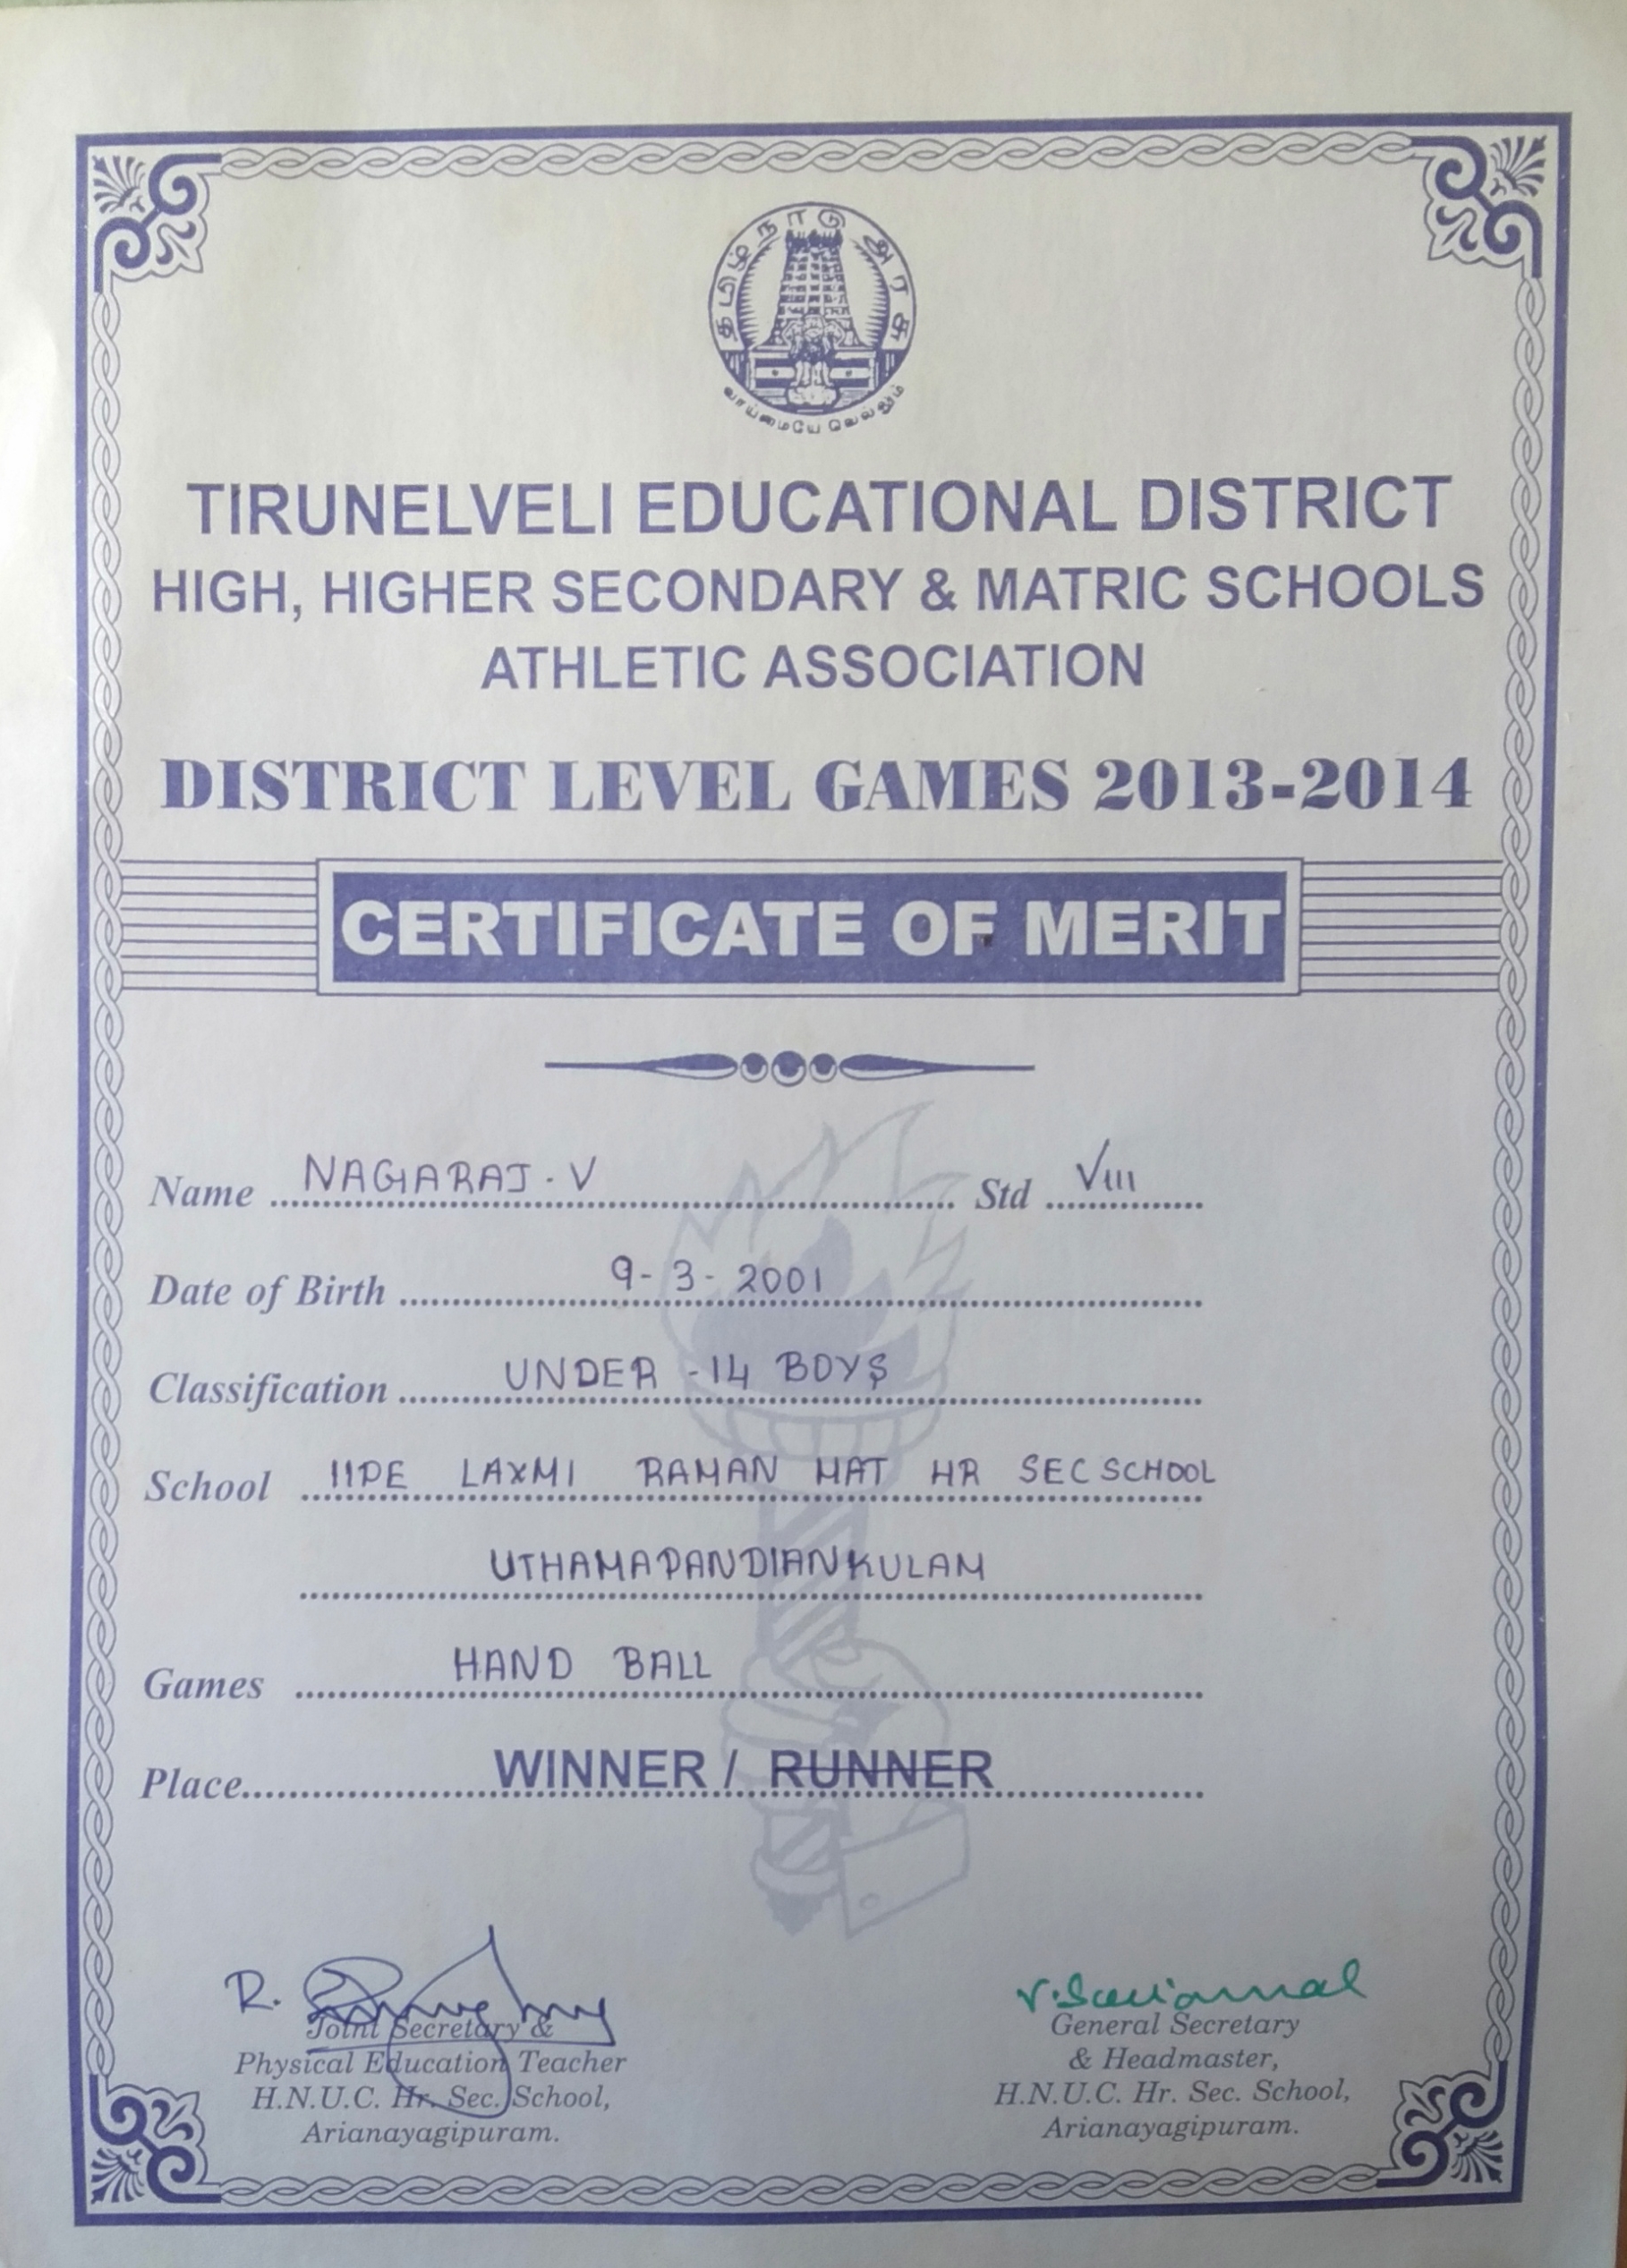 தமிழ்நாடு அரசு
வாய்மையே வெல்லும்
TIRUNELVELI EDUCATIONAL DISTRICT
HIGH, HIGHER SECONDARY & MATRIC SCHOOLS
ATHLETIC ASSOCIATION
DISTRICT LEVEL GAMES 2013-2014
CERTIFICATE OF MERIT
Name NAGARAJ.V Std VIII
Date of Birth 9-3-2001
Classification UNDER-14 BOYS
School IIPE LAXMI RAMAN MAT HR SEC SCHOOL
UTHAMAPANDIANKULAM
Games HAND BALL
Place WINNER / RUNNER
R.
Joint Secretary &
Physical Education Teacher
H.N.U.C. Hr. Sec. School,
Arianayagipuram.
General Secretary
& Headmaster,
H.N.U.C. Hr. Sec. School,
Arianayagipuram.